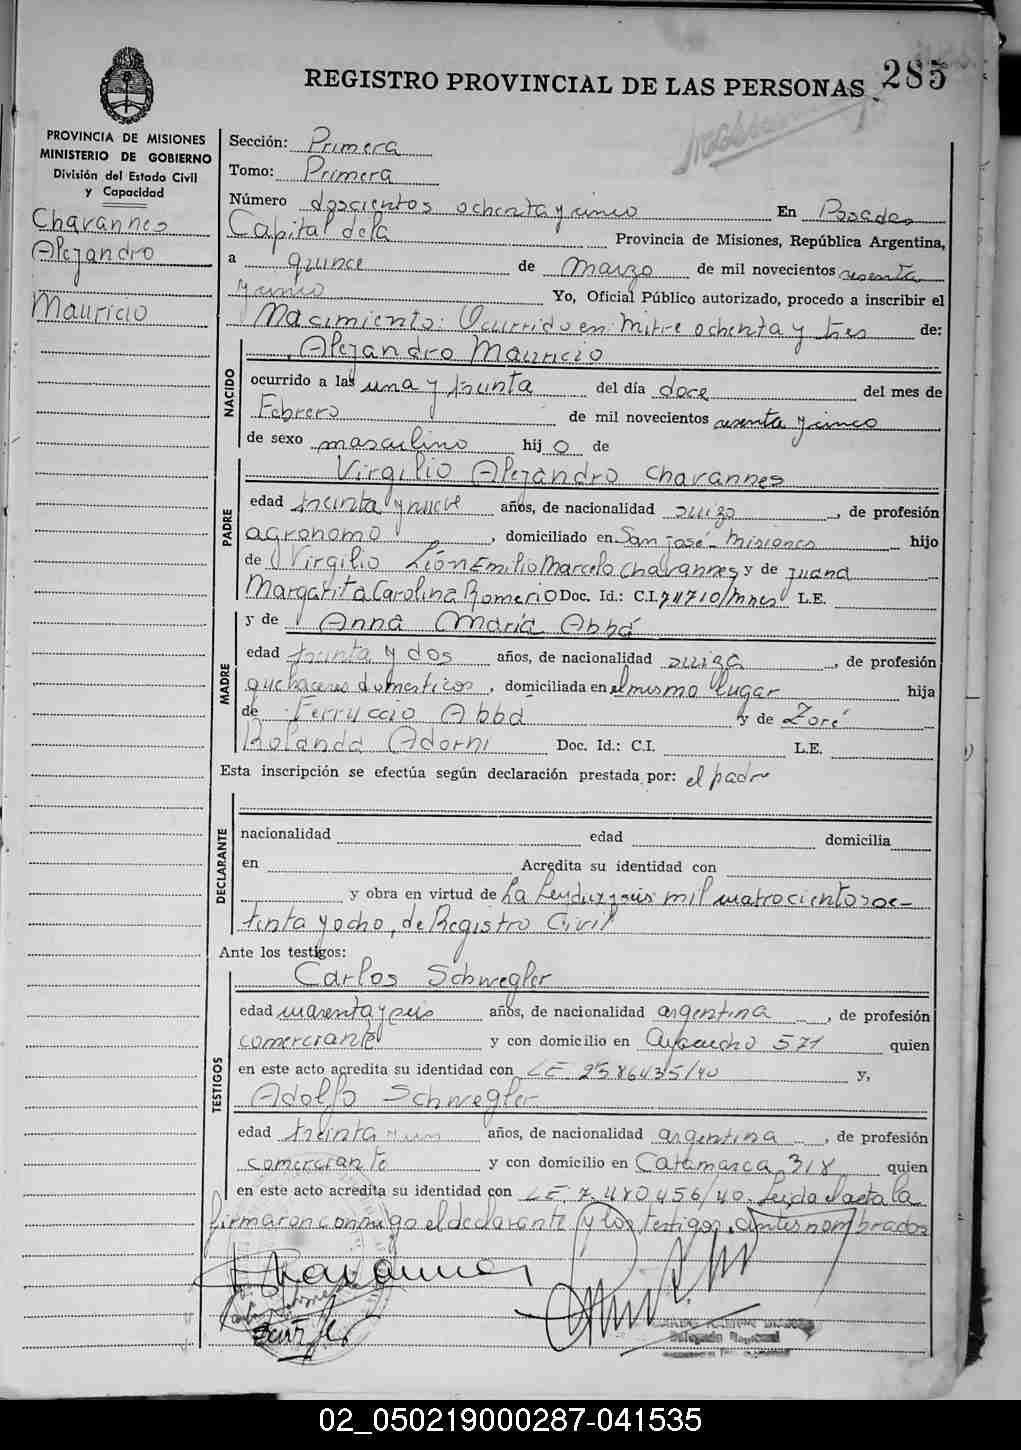 REGISTRO PROVINCIAL DE LAS PERSONAS 285
PROVINCIA DE MISIONES
MINISTERIO DE GOBIERNO
División del Estado Civil
y Capacidad
Chavannes
Alejandro
Mauricio
Sección: Primera
Tomo: Primera
Número doscientos ochenta y cinco En Posadas
Capital de la Provincia de Misiones, República Argentina,
a quince de Marzo de mil novecientos sesenta
y cinco Yo, Oficial Público autorizado, procedo a inscribir el
Nacimiento: Ocurrido en: Mitre ochenta y tres de:
NACIDO
Alejandro Mauricio
ocurrido a las una y treinta del día doce del mes de
Febrero de mil novecientos sesenta y cinco
de sexo masculino hij o de
PADRE
Virgilio Alejandro Chavannes
edad treinta y nueve años, de nacionalidad suiza, de profesión
agronomo, domiciliado en San José - Misiones hijo
de Virgilio León Emilio Marcelo Chavannes y de Juana
Margarita Carolina Romerio Doc. Id.: C.I. L.E.
MADRE
y de Anna Maria Abbá
edad treinta y dos años, de nacionalidad suiza, de profesión
quehaceres domesticos, domiciliada en el mismo lugar hija
de Ferruccio Abbá y de Zoré
Rolanda Adorni Doc. Id.: C.I. L.E.
Esta inscripción se efectúa según declaración prestada por: el padre
DECLARANTE
nacionalidad edad domicilia
en Acredita su identidad con
y obra en virtud de La Ley diez y seis mil cuatrocientos se-
tenta y ocho, de Registro Civil
Ante los testigos:
TESTIGOS
Carlos Schwegler
edad cuarenta y seis años, de nacionalidad argentina, de profesión
comerciante y con domicilio en Ayacucho 571 quien
en este acto acredita su identidad con LE 2586435/40 y,
Adolfo Schwegler
edad treinta y un años, de nacionalidad argentina, de profesión
comerciante y con domicilio en Catamarca 318 quien
en este acto acredita su identidad con LE 7.480456/40. Leyda el acta la
firmaron conmigo el declarante y los testigos antes nombrados
Chavannes
Delegado Regional
02_050219000287-041535